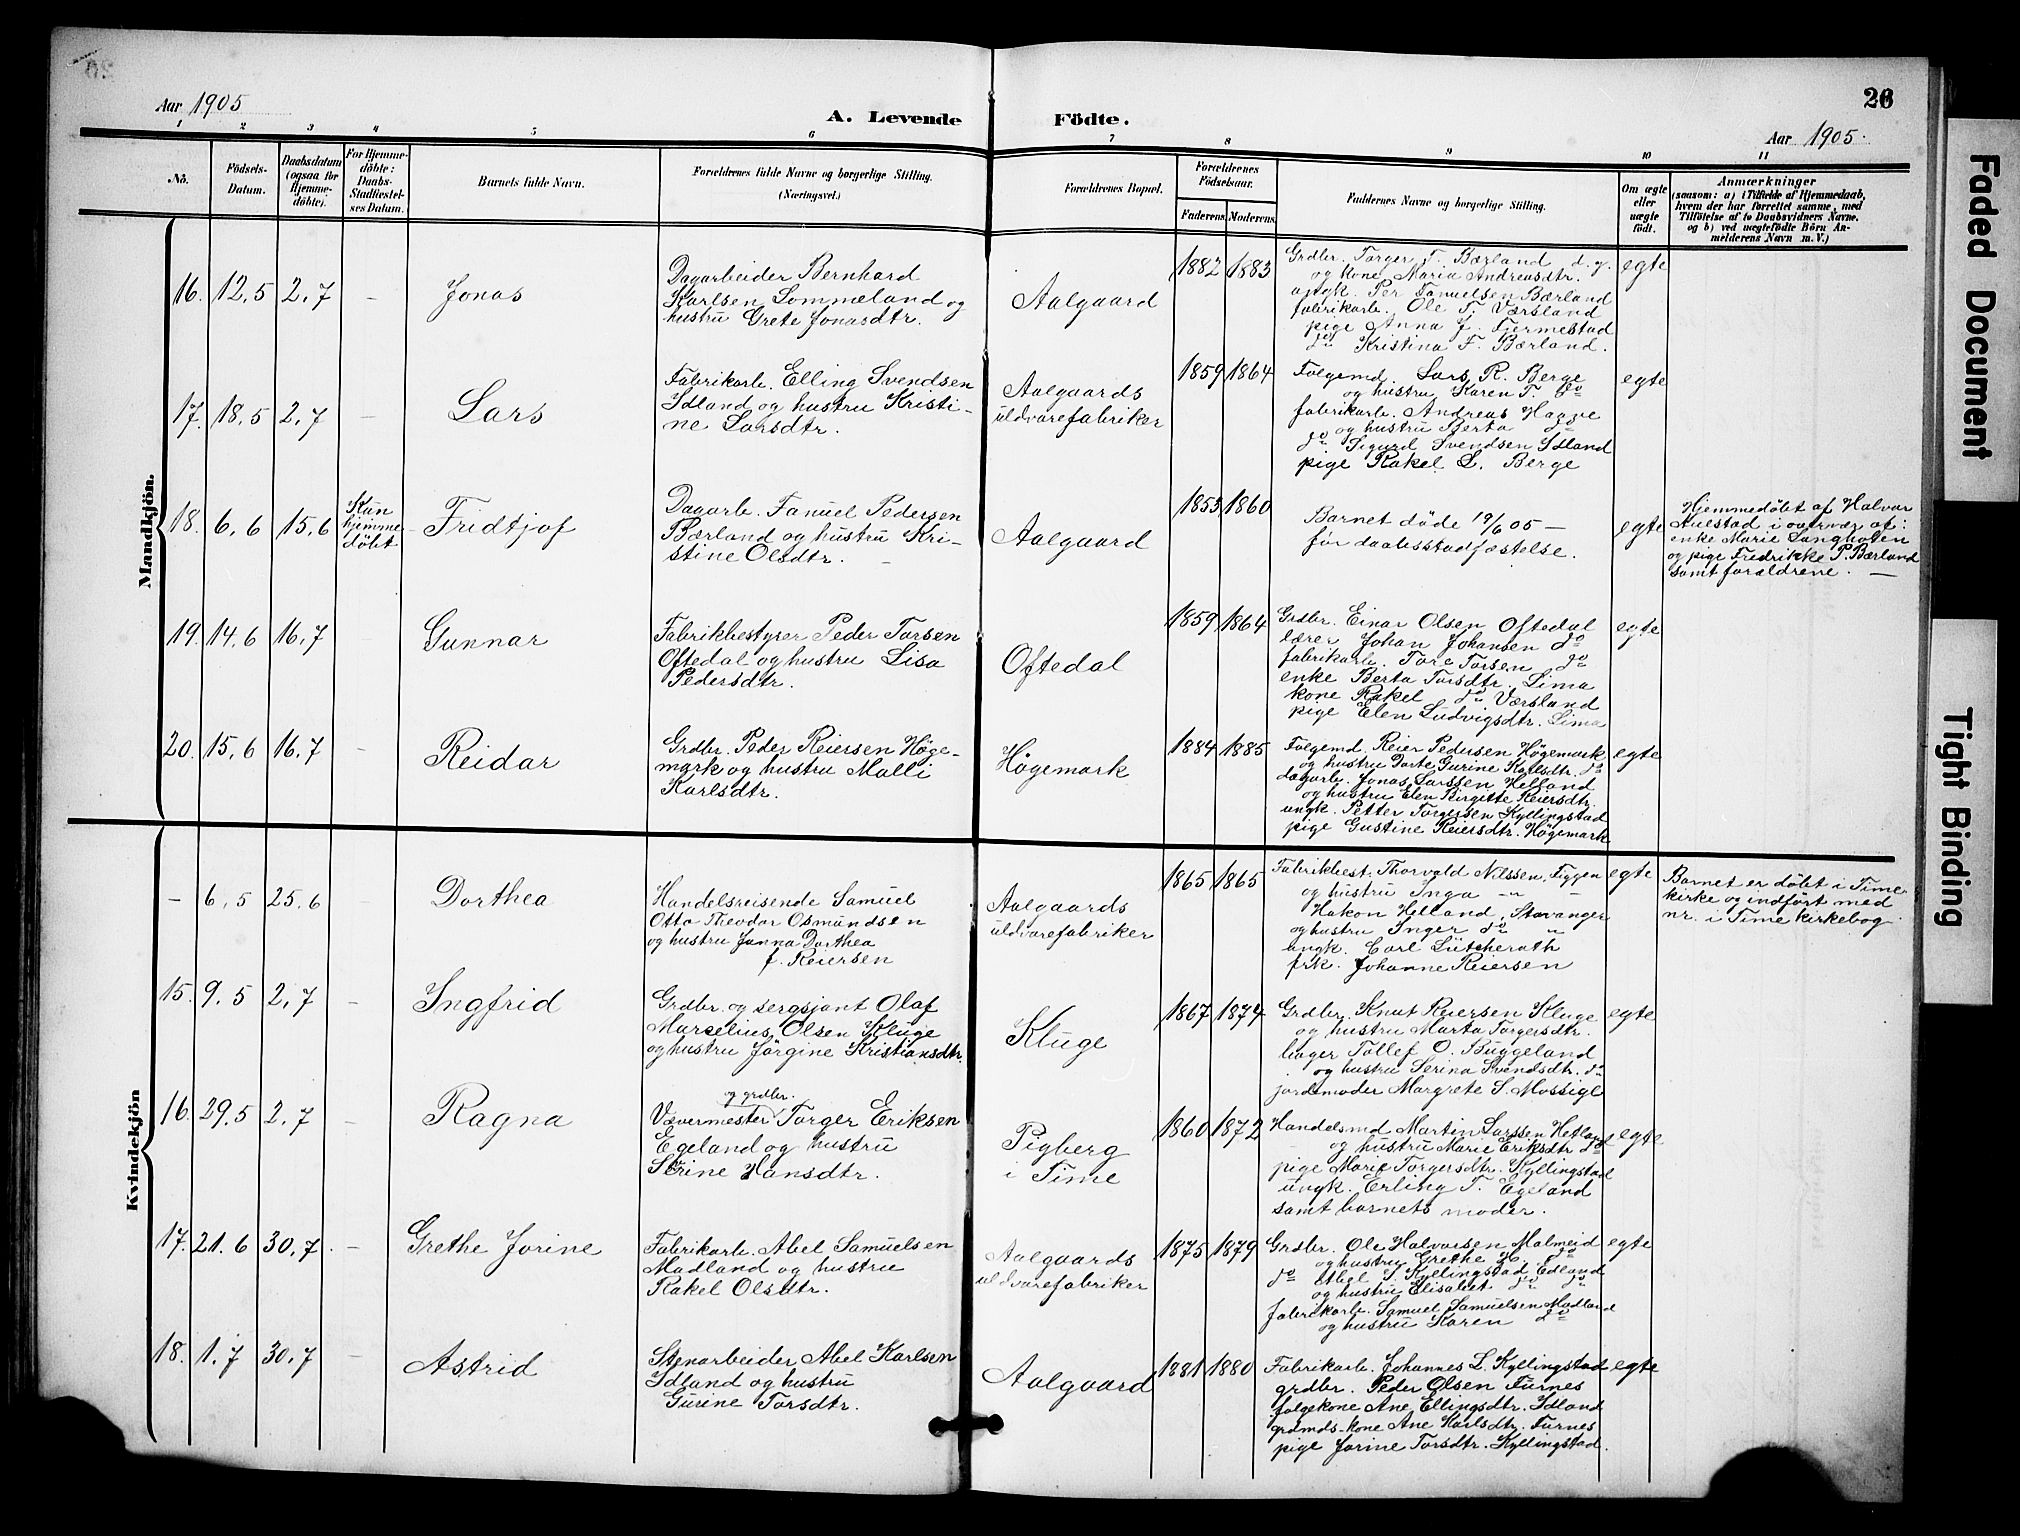 26
Aar 1905
A. Levende Födte.
Aar 1905.
1 2 3 4 5 6 7 8 9 10 11
No.
Födsels-Datum.
Daabsdatum (ogsaa for Hjemmedöbte).
For Hjemmedöbte: Daabs-Stadfæstelses Datum.
Barnets fulde Navn.
Forældrenes fulde Navne og borgerlige Stilling. (Næringsvei.)
Forældrenes Bopæl.
Forældrenes Födselsaar.
Faderens. Moderens.
Faddernes Navne og borgerlige Stilling.
Om ægte eller uægte födt.
Anmærkninger
(saasom: a) i Tilfælde af Hjemmedaab,
hvem der har forrettet samme, med
Tilföielse af to Daabsvidners Navne,
og b) ved uægtefödte Börn An-
melderens Navn m. V.)
Mandkjön.
16. 12,5 2,7 - Jonas
Dagarbeider Bernhard
Karlsen Sommeland og
hustru Grete Jonasdtr.
Aalgaard
1882 1883
Grdbr. Torger T. Bærland d.y.
og kone Maria Andreasdtr.
ungk. Per Fanuelsen Bærland
fabrikarb. Ole T. Værsland
pige Anna J. Fjermestad
do Kristina F. Bærland.
egte
17. 18,5 2,7 - Lars
Fabrikarb. Elling Svendsen
Idland og hustru Kristi-
ne Larsdtr.
Aalgaards
uldvarefabriker
1859 1864
Folgemd. Lars R. Berge
og hustru Karen T. do
fabrikarb. Andreas Haave
og hustru Berta do
do Sigurd Svendsen Idland
pige Rakel L. Berge
egte
18. 6,6 15,6
Kun
hjemme-
döbt
Fridtjof
Dagarb. Fanuel Pedersen
Bærland og hustru Kri-
stine Olsdtr. -
Aalgaard
1853 1860
Barnet döde 19/6 05 -
för daabsstadfæstelse.
egte
Hjemmedöbt af Halvar
Aulestad i overvær af:
enke Marie Langholen
og pige Fredrikke P. Bærland
samt forældrene. -
19. 14,6 16,7 Gunnar
Fabrikbestyrer Peder Torsen
Oftedal og hustru Lisa
Pedersdtr.
Oftedal
1859 1864
Grdbr. Einar Olsen Oftedal
lærer Johan Johansen do
fabrikarb. Tore Torsen do
enke Berta Torsdtr. Lima
kone Rakel do Værsland
pige Elen Ludvigsdtr. Lima
egte
20. 15,6 16,7 - Reidar
Grdbr. Peder Reiersen Høge-
mark og hustru Malli
Karlsdtr.
Høgemark
1884 1885
Folgemd. Reier Pedersen Høgemark
og hustru Dorte Gurine Karlsdtr. do
dagarb. Jonas Larssen Helland
og hustru Elen Birgitte Reiersdtr.
ungk. Petter Torgersen Kyllingstad
pige Gustine Reiersdtr. Høgemark
egte
Kvindekjön
- 6,5 25,6 Dorthea
Handelsreisende Samuel
Otto Theodor Osmundsen
og hustru Janna Dorthea
f. Reiersen
Aalgaards
uldvarefabriker
1865 1865
Fabrikbest. Thorvald Nilssen, Figgen
og hustru Inga -"- "
Hakon Helland, Stavanger
og hustru Inger do "
ungk. Carl Lütcherath
frk. Johanne Reiersen
egte
Barnet er döbt i Time
kirke og indfört med
nr. i Time kirkebog.
15. 9,5 2,7 - Ingfrid
Grdbr. og sergsjant Olaf
Marselius Olsen Kluge
og hustru Jörgine Kristiansdtr.
Kluge
1867 1874
Grdbr. Knut Reiersen Kluge
og hustru Marta Torgersdtr.
bager Tollef O. Buggeland
og hustru Serina Svendsdtr. do
jordemoder Margrete S. Mossige
egte
16. 29,5 2,7 - Ragna
og grdbr.
Vævermester Torger Eriksen
Egeland og hustru
Serine Hansdtr.
Pigberg
i Time
1860 1872
Handelsmd Martin Larssen Hetland
og hustru Marie Eriksdtr do
pige Marie Torgersdtr. Kyllingstad
ungk. Erling T. Egeland
samt barnets moder.
egte
17. 21.6 30,7. - Grethe Jorine
Fabrikarb. Abel Samuelsen
Madland og hustru
Rakel Olsdtr.
Aalgaards
uldvarefabriker
1875 1879
Grdbr. Ole Halvorsen Malmeid
og hustru Grethe H. do
do Abel S. Kyllingstad Edland
og hustru Elisabet do do
fabrikarb. Samuel Samuelsen Madland
og hustru Karen do
egte
18. 1,7 30,7 - Astrid
Stenarbeider Abel Karlsen
Idland og hustru
Gurene Torsdtr.
Aalgaard
1881 1880
Fabrikarb. Johannes L. Kyllingstad
grdbr. Peder Olsen Furnes
folgekone Ane Ellingsdtr. Idland
grdmds-kone Ane Karlsdtr. Furnes
pige Jorine Torsdtr. Kyllingstad.
egte
Faded Document
Tight Binding